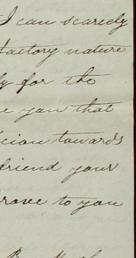 I can scarcely
factory nature
ly for the
e you that
icion towards
friend your
prove to you